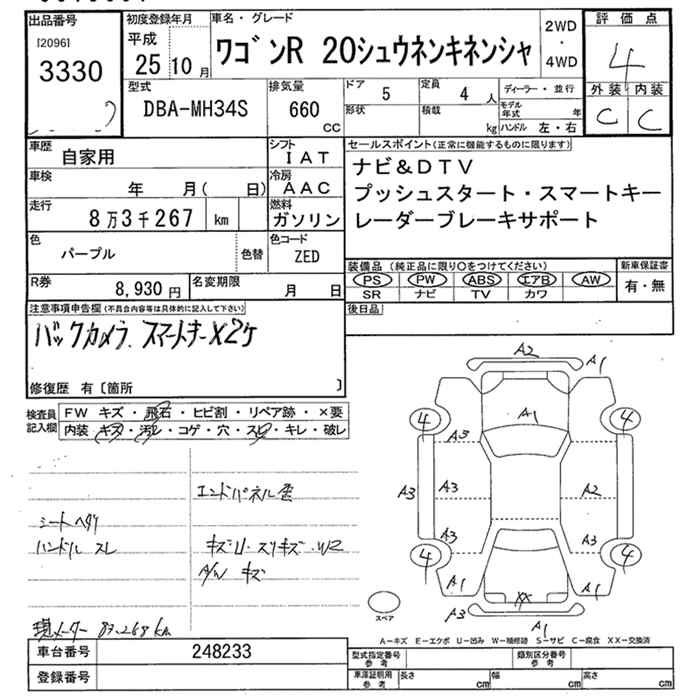 出品番号
[2096]
3330
初度登録年月
平成
25 10 月
車名・グレード
ワゴンR 20シュウネンキネンシャ
2WD
・
4WD
評価点
4
外装 内装
C C
型式
DBA-MH34S
排気量
660
cc
ドア 5
形状
定員 4 人
積載 kg
ディーラー・並行
モデル年式 年
ハンドル 左・右
車歴 自家用
シフト IAT
車検 年 月( 日)
冷房 AAC
走行 8万3千267 km
燃料 ガソリン
色 パープル 色替
色コード ZED
R券 8,930円
名変期限 月 日
セールスポイント(正常に機能するものに限ります)
ナビ&DTV
プッシュスタート・スマートキー
レーダーブレーキサポート
装備品(純正品に限り○をつけてください)
PS PW ABS エアB AW
SR ナビ TV カワ
新車保証書
有・無
後日品
注意事項申告欄(不具合内容等は具体的に記入して下さい)
バックカメラ、スマートキーX2ケ
修復歴 有〔箇所 〕
検査員記入欄
FW キズ・飛石・ヒビ割・リペア跡・×要
内装 キズ・汚レ・コゲ・穴・スレ・キレ・破レ
シートヘタリ
ハンドル スレ
エンドパネル歪
キズU・スリキズ・W2
A/W キズ
現メーター 83,268km
A2
A1
4 A1 4
A3
A3 A3 A2
A3 A3
4 4
A1 XX A1
A3
A1
スペア
A-キズ E-エクボ U-凹み W-補修跡 S-サビ C-腐食 XX-交換済
車台番号 248233
登録番号
型式指定番号 参考
類別区分番号 参考
車庫証明用 参考
長さ cm
幅 cm
高さ cm